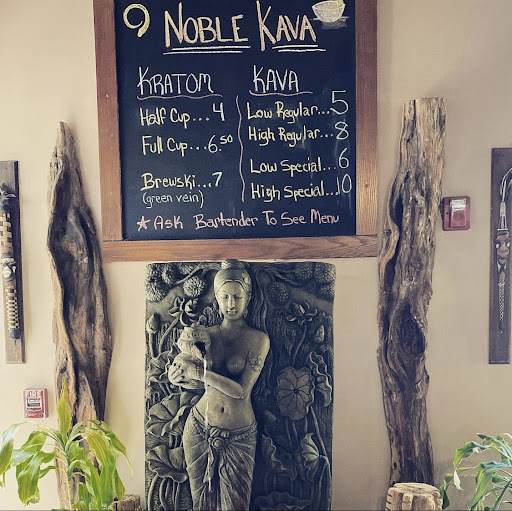 9 NOBLE KAVA
KRATOM
Half Cup...4
Full Cup...6.50
Brewski...7
(green vein)
KAVA
Low Regular...5
High Regular...8
Low Special...6
High Special...10
* Ask Bartender To See Menu
FIRE